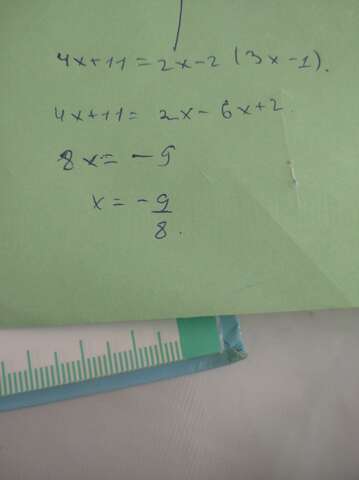 4x+11=2x-2(3x-1).
4x+11=2x-6x+2.
8x=-9
x=-9/8.